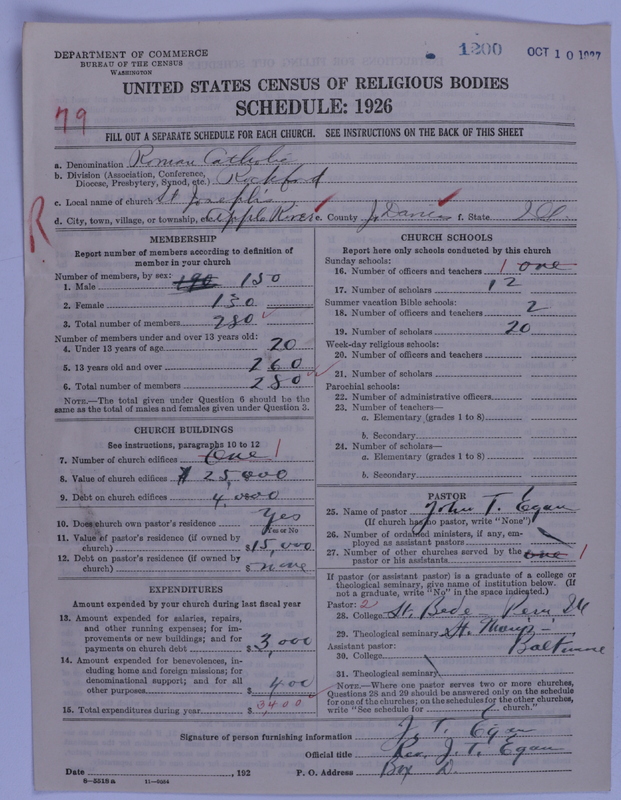 DEPARTMENT OF COMMERCE
BUREAU OF THE CENSUS
WASHINGTON
1200 OCT 10 1927
UNITED STATES CENSUS OF RELIGIOUS BODIES
SCHEDULE: 1926
79
FILL OUT A SEPARATE SCHEDULE FOR EACH CHURCH. SEE INSTRUCTIONS ON THE BACK OF THIS SHEET
a. Denomination Roman Catholic
b. Division (Association, Conference,
Diocese, Presbytery, Synod, etc.) Rockford
c. Local name of church St Joseph's
R
d. City, town, village, or township, etc. Apple River e. County Jo Daviess f. State Ill.
MEMBERSHIP
Report number of members according to definition of
member in your church
Number of members, by sex:
1. Male 150
2. Female 130
3. Total number of members 280
Number of members under and over 13 years old:
4. Under 13 years of age 20
5. 13 years old and over 260
6. Total number of members 280
NOTE.—The total given under Question 6 should be
same as the total of males and females given under Question 3.
CHURCH BUILDINGS
See instructions, paragraphs 10 to 12
7. Number of church edifices One 1
8. Value of church edifices $ 25,000
9. Debt on church edifices 4,000
10. Does church own pastor's residence Yes
Yes or No
11. Value of pastor's residence (if owned by
church) $15,000
12. Debt on pastor's residence (if owned by
church) $ none
EXPENDITURES
Amount expended by your church during last fiscal year
13. Amount expended for salaries, repairs,
and other running expenses; for im-
provements or new buildings; and for
payments on church debt $ 3,000
14. Amount expended for benevolences, in-
cluding home and foreign missions; for
denominational support; and for all
other purposes 400
15. Total expenditures during year $ 3400
CHURCH SCHOOLS
Report here only schools conducted by this church
Sunday schools:
16. Number of officers and teachers 1 one
17. Number of scholars 12
Summer vacation Bible schools:
18. Number of officers and teachers 2
19. Number of scholars 20
Week-day religious schools:
20. Number of officers and teachers
21. Number of scholars
Parochial schools:
22. Number of administrative officers
23. Number of teachers—
a. Elementary (grades 1 to 8)
b. Secondary
24. Number of scholars—
a. Elementary (grades 1 to 8)
b. Secondary
PASTOR
25. Name of pastor John T. Egan
(If church has no pastor, write "None")
26. Number of ordained ministers, if any, em-
ployed as assistant pastors
27. Number of other churches served by the
pastor or his assistants one 1
If pastor (or assistant pastor) is a graduate of a college or
theological seminary, give name of institution below. (If
not a graduate, write "No" in the space indicated.)
Pastor: 2
28. College St. Bede Peru Ill
29. Theological seminary St. Mary's -
Baltimore
Assistant pastor:
30. College
31. Theological seminary
NOTE.—Where one pastor serves two or more churches,
Questions 28 and 29 should be answered only on the schedule
for one of the churches; on the schedules for the other churches,
write "See schedule for church."
Signature of person furnishing information J. T. Egan
Official title Rev. J. T. Egan
Date , 192 P. O. Address Box D.
8—5518a 11—9264